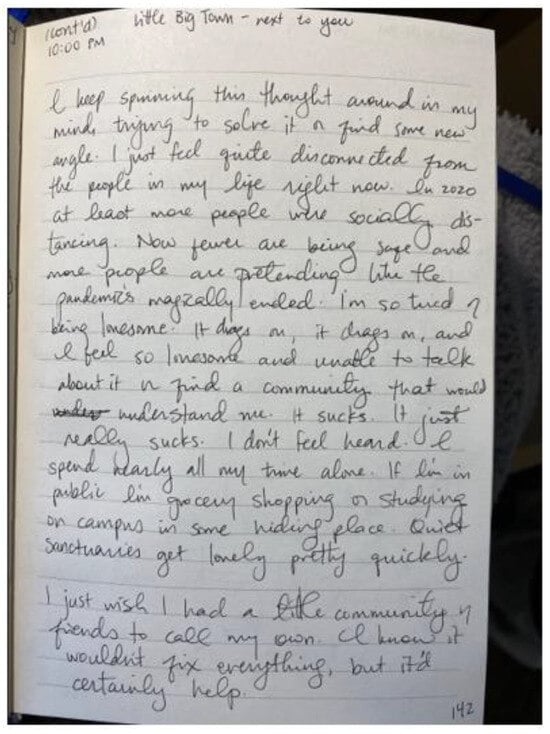 (cont'd) Little Big Town - next to you
10:00 PM
I keep spinning this thought around in my
mind, trying to solve it or find some new
angle. I just feel quite disconnected from
the people in my life right now. In 2020
at least more people were socially dis-
tancing. Now fewer are being safe and
more people are pretending like the
pandemic's magically ended. I'm so tired of
being lonesome. It drags on, it drags on, and
I feel so lonesome and unable to talk
about it or find a community that would
under understand me. It sucks. It just
really sucks. I don't feel heard. I
spend nearly all my time alone. If I'm in
public I'm grocery shopping or studying
on campus in some hiding place. Quiet
sanctuaries get lonely pretty quickly.
I just wish I had a little community of
friends to call my own. I know it
wouldn't fix everything, but it'd
certainly help.
142